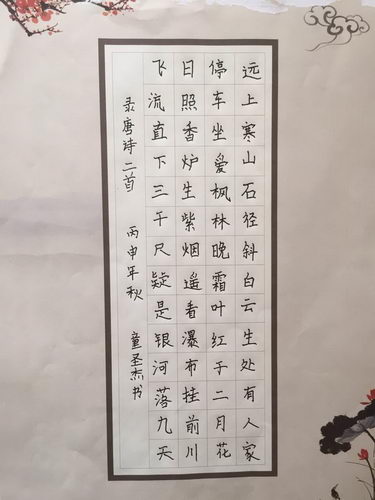 远上寒山石径斜白云生处有人家
停车坐爱枫林晚霜叶红于二月花
日照香炉生紫烟遥看瀑布挂前川
飞流直下三千尺疑是银河落九天
录唐诗二首 丙申年秋 童圣杰书